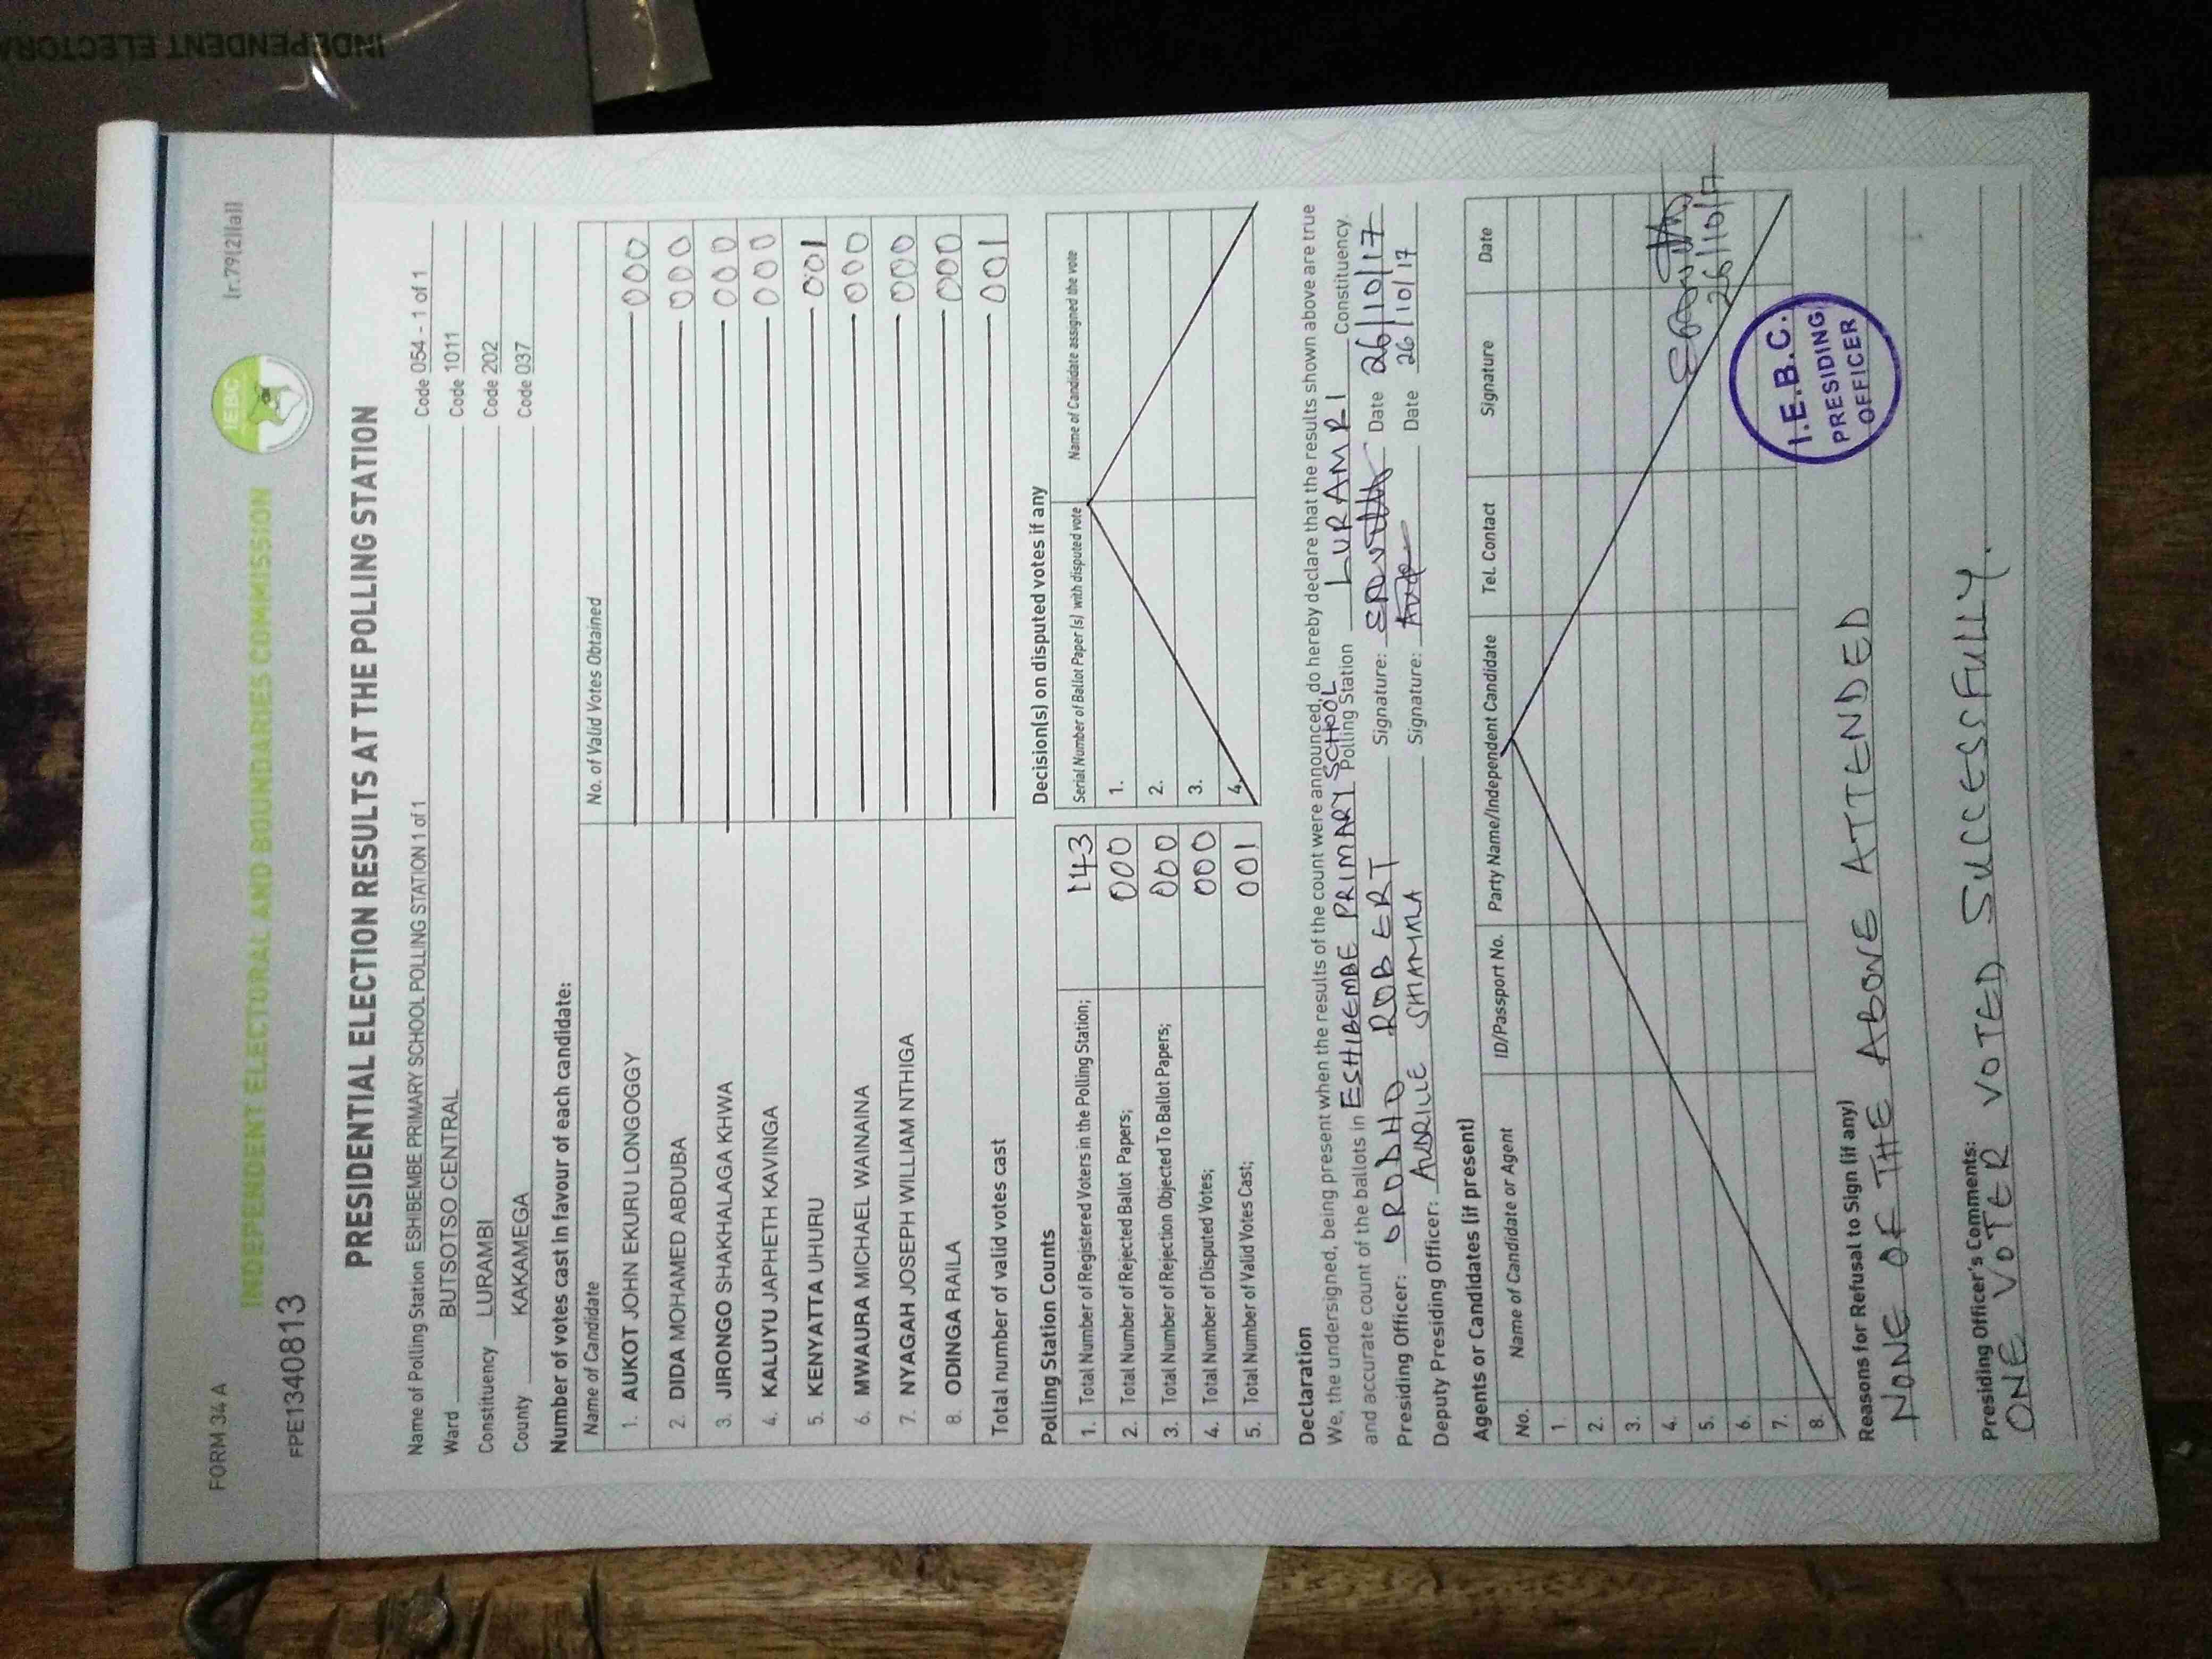 INDEPENDENT ELECTORA
FORM 34 A
[r.79(2)(a)]
IEBC
INDEPENDENT ELECTORAL AND BOUNDARIES COMMISSION
FPE1340813
PRESIDENTIAL ELECTION RESULTS AT THE POLLING STATION
Name of Polling Station ESHIBEMBE PRIMARY SCHOOL POLLING STATION 1 of 1 Code 054 - 1 of 1
Ward BUTSOTSO CENTRAL Code 1011
Constituency LURAMBI Code 202
County KAKAMEGA Code 037
Number of votes cast in favour of each candidate:
Name of Candidate No. of Valid Votes Obtained
1. AUKOT JOHN EKURU LONGOGGY 000
2. DIDA MOHAMED ABDUBA 000
3. JIRONGO SHAKHALAGA KHWA 000
4. KALUYU JAPHETH KAVINGA 000
5. KENYATTA UHURU 001
6. MWAURA MICHAEL WAINAINA 000
7. NYAGAH JOSEPH WILLIAM NTHIGA 000
8. ODINGA RAILA 000
Total number of valid votes cast 001
Polling Station Counts
1. Total Number of Registered Voters in the Polling Station; 143
2. Total Number of Rejected Ballot Papers; 000
3. Total Number of Rejection Objected To Ballot Papers; 000
4. Total Number of Disputed Votes; 000
5. Total Number of Valid Votes Cast; 001
Decision(s) on disputed votes if any
Serial Number of Ballot Paper (s) with disputed vote Name of Candidate assigned the vote
1.
2.
3.
4.
Declaration
We, the undersigned, being present when the results of the count were announced, do hereby declare that the results shown above are true
and accurate count of the ballots in ESHIBEMBE PRIMARY SCHOOL Polling Station LURAMRI Constituency.
Presiding Officer: ORODHO ROBERT Signature: Date 26/10/17
Deputy Presiding Officer: AUDRILLE SHIAMALA Signature: Date 26/10/17
Agents or Candidates (if present)
No. Name of Candidate or Agent ID/Passport No. Party Name/Independent Candidate Tel. Contact Signature Date
1.
2.
3.
4.
5.
6.
7.
8.
26/10/17
I.E.B.C.
PRESIDING
OFFICER
Reasons for Refusal to Sign (if any)
NONE OF THE ABOVE ATTENDED
Presiding Officer's Comments:
ONE VOTER VOTED SUCCESSFULLY.